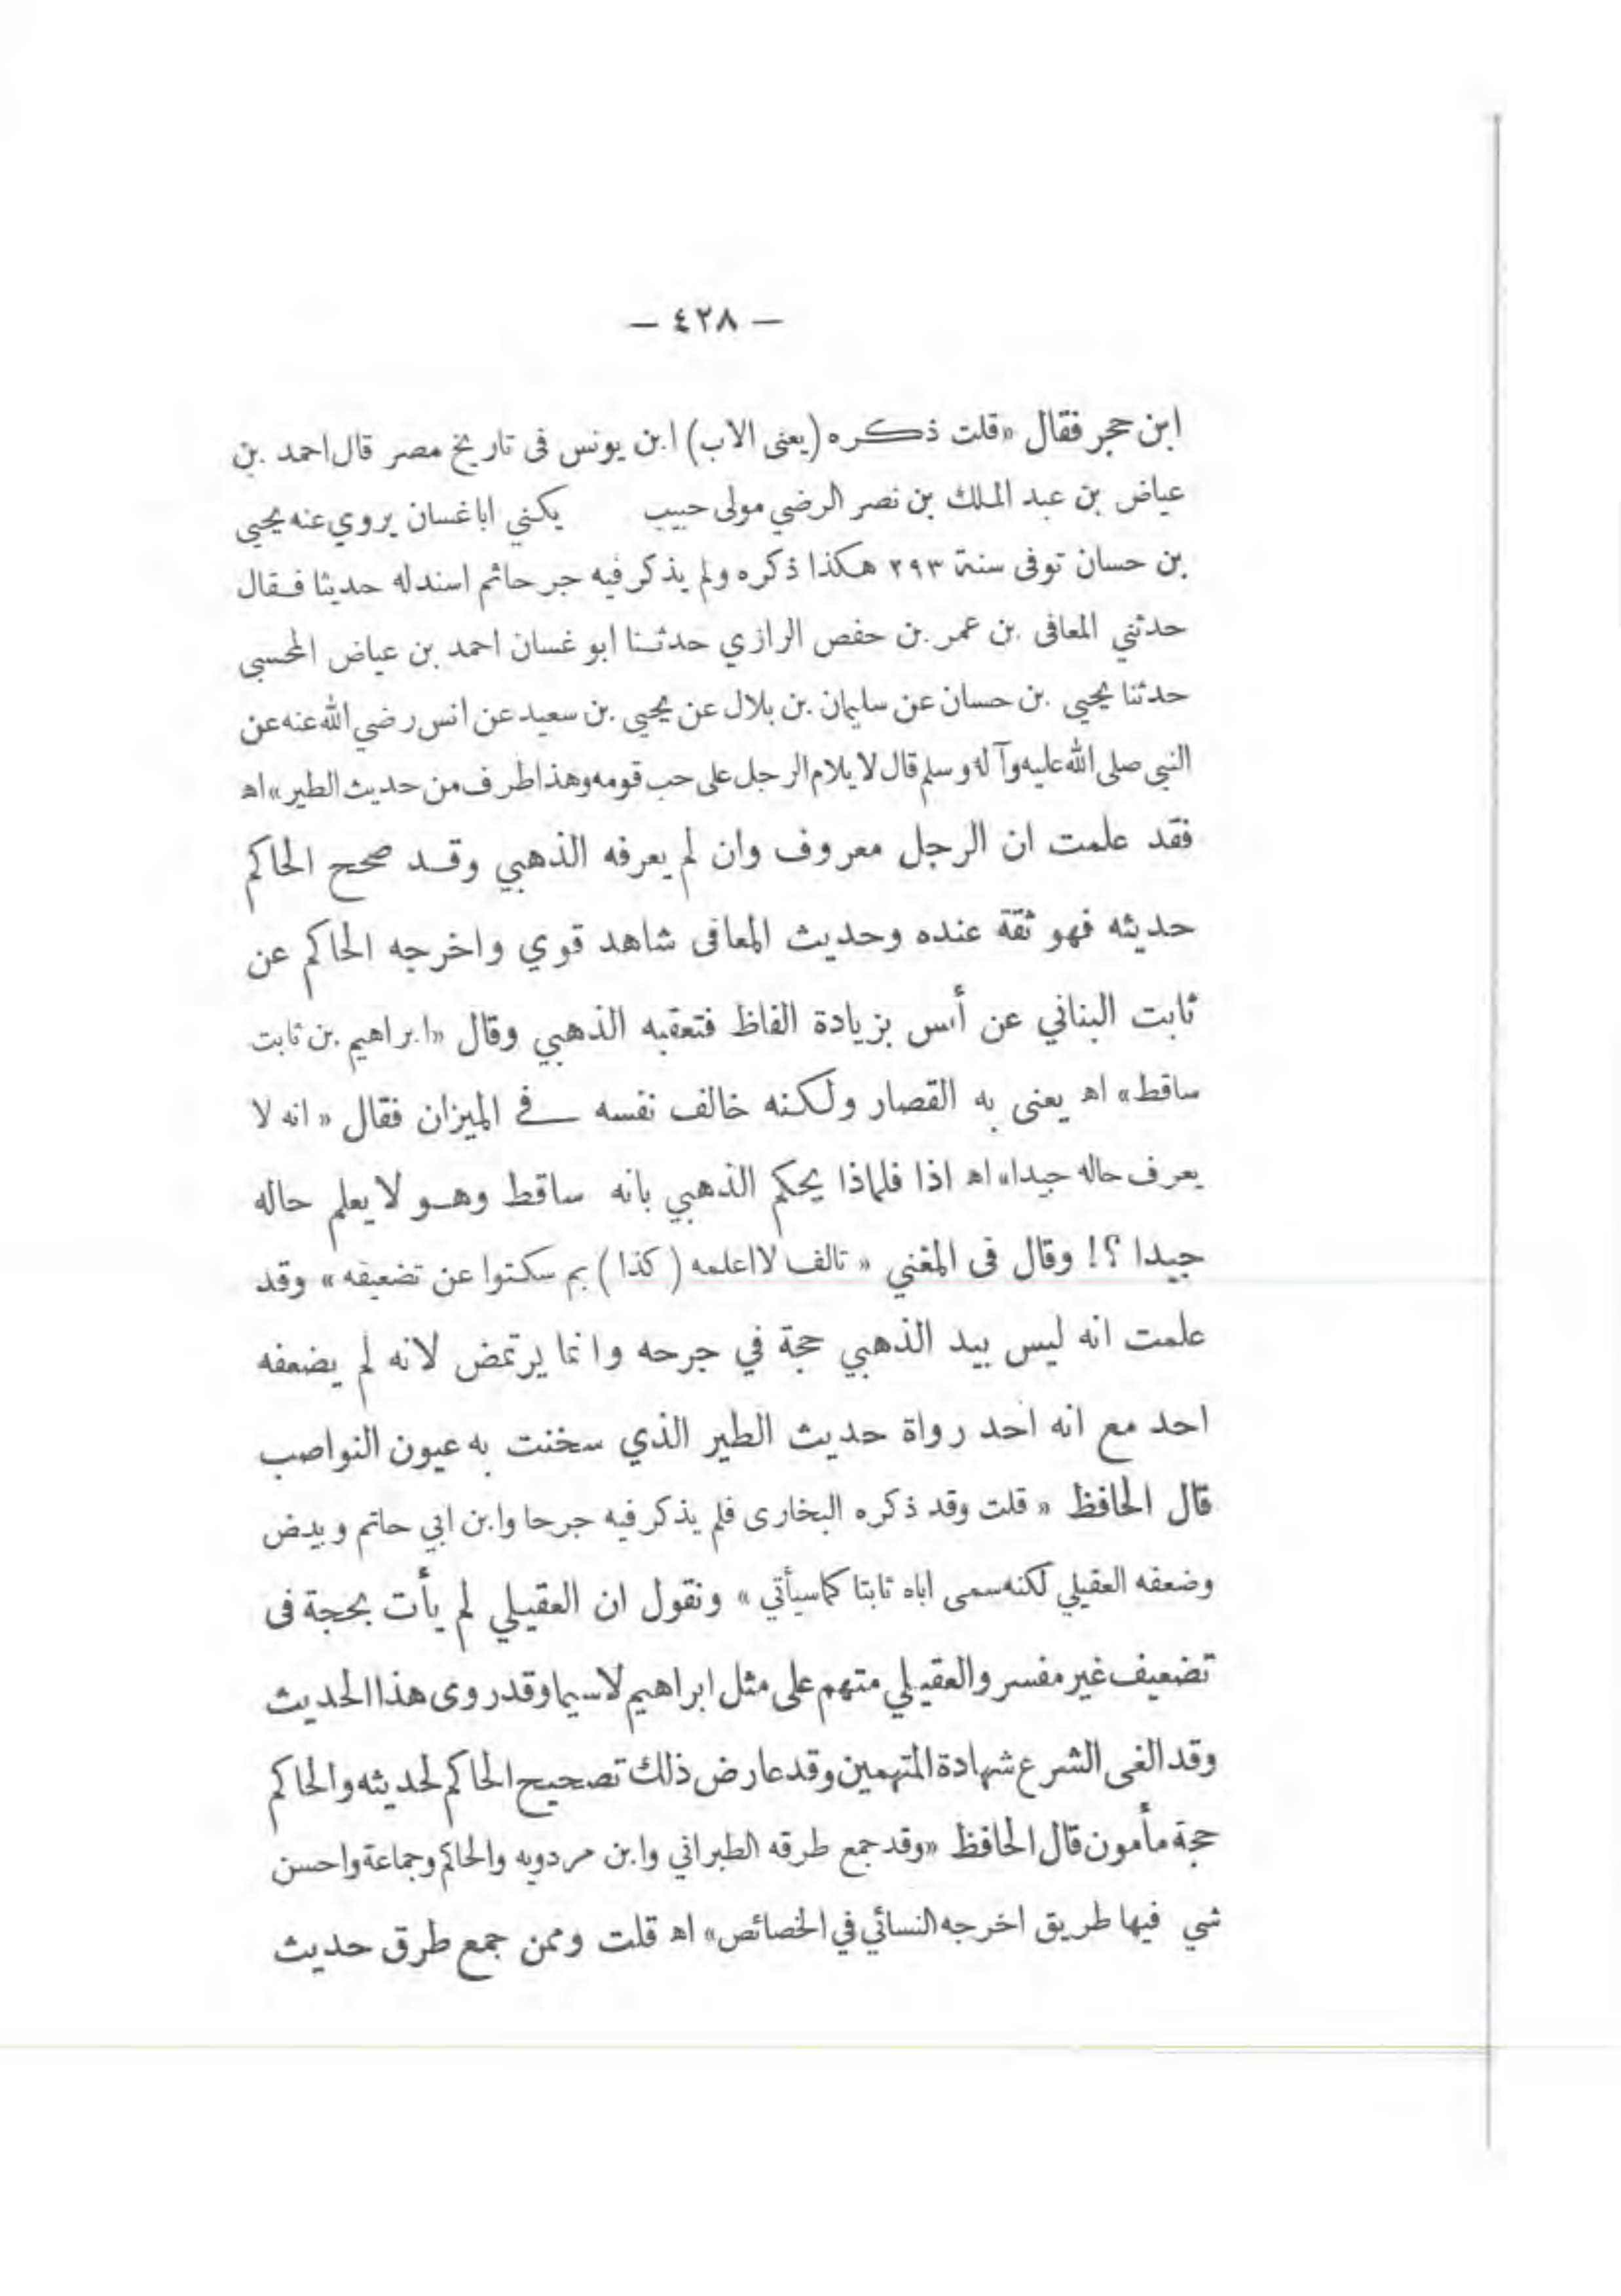 — ٤٢٨ —
ابن حجر فقال «قلت ذكره (يعنى الاب) ابن يونس فى تاريخ مصر قال احمد بن
عياض بن عبد الملك بن نصر الرضي مولى حبيب يكني اباغسان يروي عنه يحيى
بن حسان توفى سنة ٢٩٣ هكذا ذكره ولم يذكر فيه جرحاثم اسندله حديثا فقال
حدثني المعافى بن عمر بن حفص الرازي حدثنا ابو غسان احمد بن عياض المحسبى
حدثنا يحيى بن حسان عن سليمان بن بلال عن يحيى بن سعيد عن انس رضي الله عنه عن
النبى صلى الله عليه وآله وسلم قال لا يلام الرجل على حب قومه وهذا طرف من حديث الطير» اه
فقد علمت ان الرجل معروف وان لم يعرفه الذهبي وقد صحح الحاكم
حديثه فهو ثقة عنده وحديث المعافى شاهد قوي واخرجه الحاكم عن
ثابت البناني عن أنس بزيادة الفاظ فتعقبه الذهبي وقال «ابراهيم بن ثابت
ساقط» اه يعنى به القصار ولكنه خالف نفسه في الميزان فقال «انه لا
يعرف حاله جيدا» اه اذا فلماذا يحكم الذهبي بانه ساقط وهو لا يعلم حاله
جيدا ؟! وقال فى المغني « تالف لااعلمه ( كذا ) بم سكتوا عن تضعيفه » وقد
علمت انه ليس بيد الذهبي حجة في جرحه وانما يرتمض لانه لم يضعفه
احد مع انه احد رواة حديث الطير الذي سخنت به عيون النواصب
قال الحافظ « قلت وقد ذكره البخارى فلم يذكر فيه جرحا وابن ابي حاتم وبيض
وضعفه العقيلي لكنه سمى اباه ثابتا كماسيأتي » ونقول ان العقيلي لم يأت بحجة فى
تضعيف غير مفسر والعقيلي متهم على مثل ابراهيم لاسيما وقد روى هذا الحديث
وقد الغى الشرع شهادة المتهمين وقد عارض ذلك تصحيح الحاكم لحديثه والحاكم
حجة مأمون قال الحافظ «وقد جمع طرقه الطبراني وابن مردويه والحاكم وجماعة واحسن
شي فيها طريق اخرجه النسائي في الخصائص» اه قلت وممن جمع طرق حديث